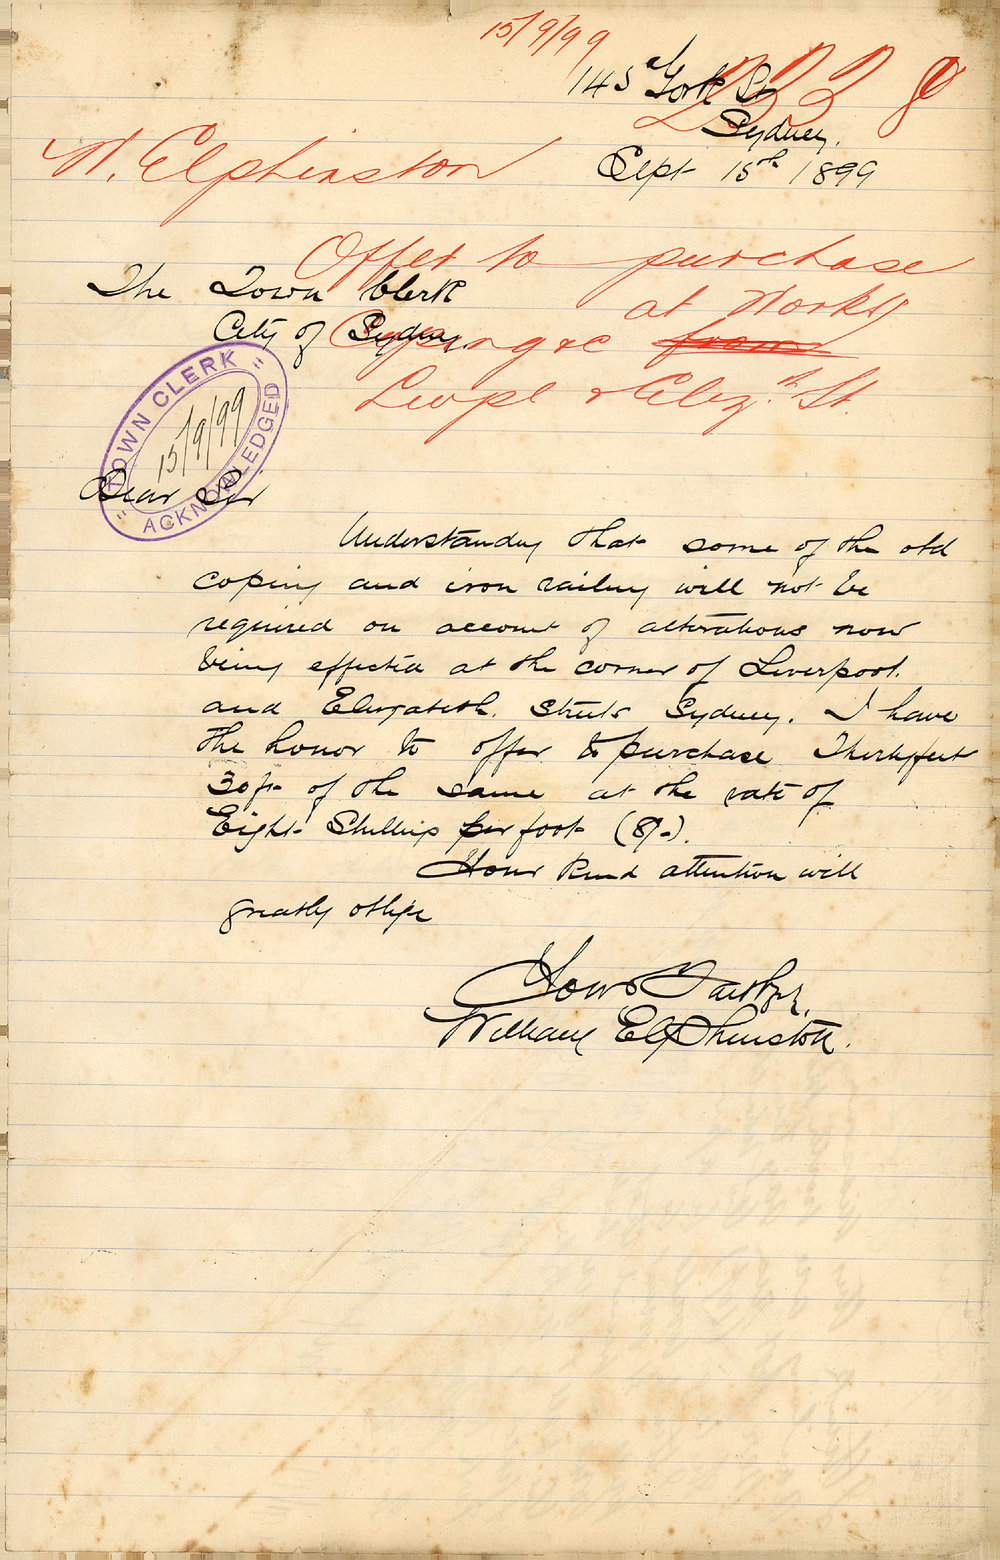 15/9/99
145a York St
Sydney.
Sept 15th 1899
W. Elphinston
Offer to purchase
at Works
Coping &c from
Livpl & Eliz.th St.
The Town Clerk
City of Sydney.
"TOWN CLERK"
15/9/99
ACKNOWLEDGED
Dear Sir
Understanding that some of the old
coping and iron railing will not be
required on account of alterations now
being effected at the corner of Liverpool
and Elizabeth. Streets Sydney. I have
the honor to offer to purchase Thirty feet
30ft of the same at the rate of
Eight Shillings per foot (8/-).
Your kind attention will
greatly oblige
Yours Faithfy.
William Elphinston.